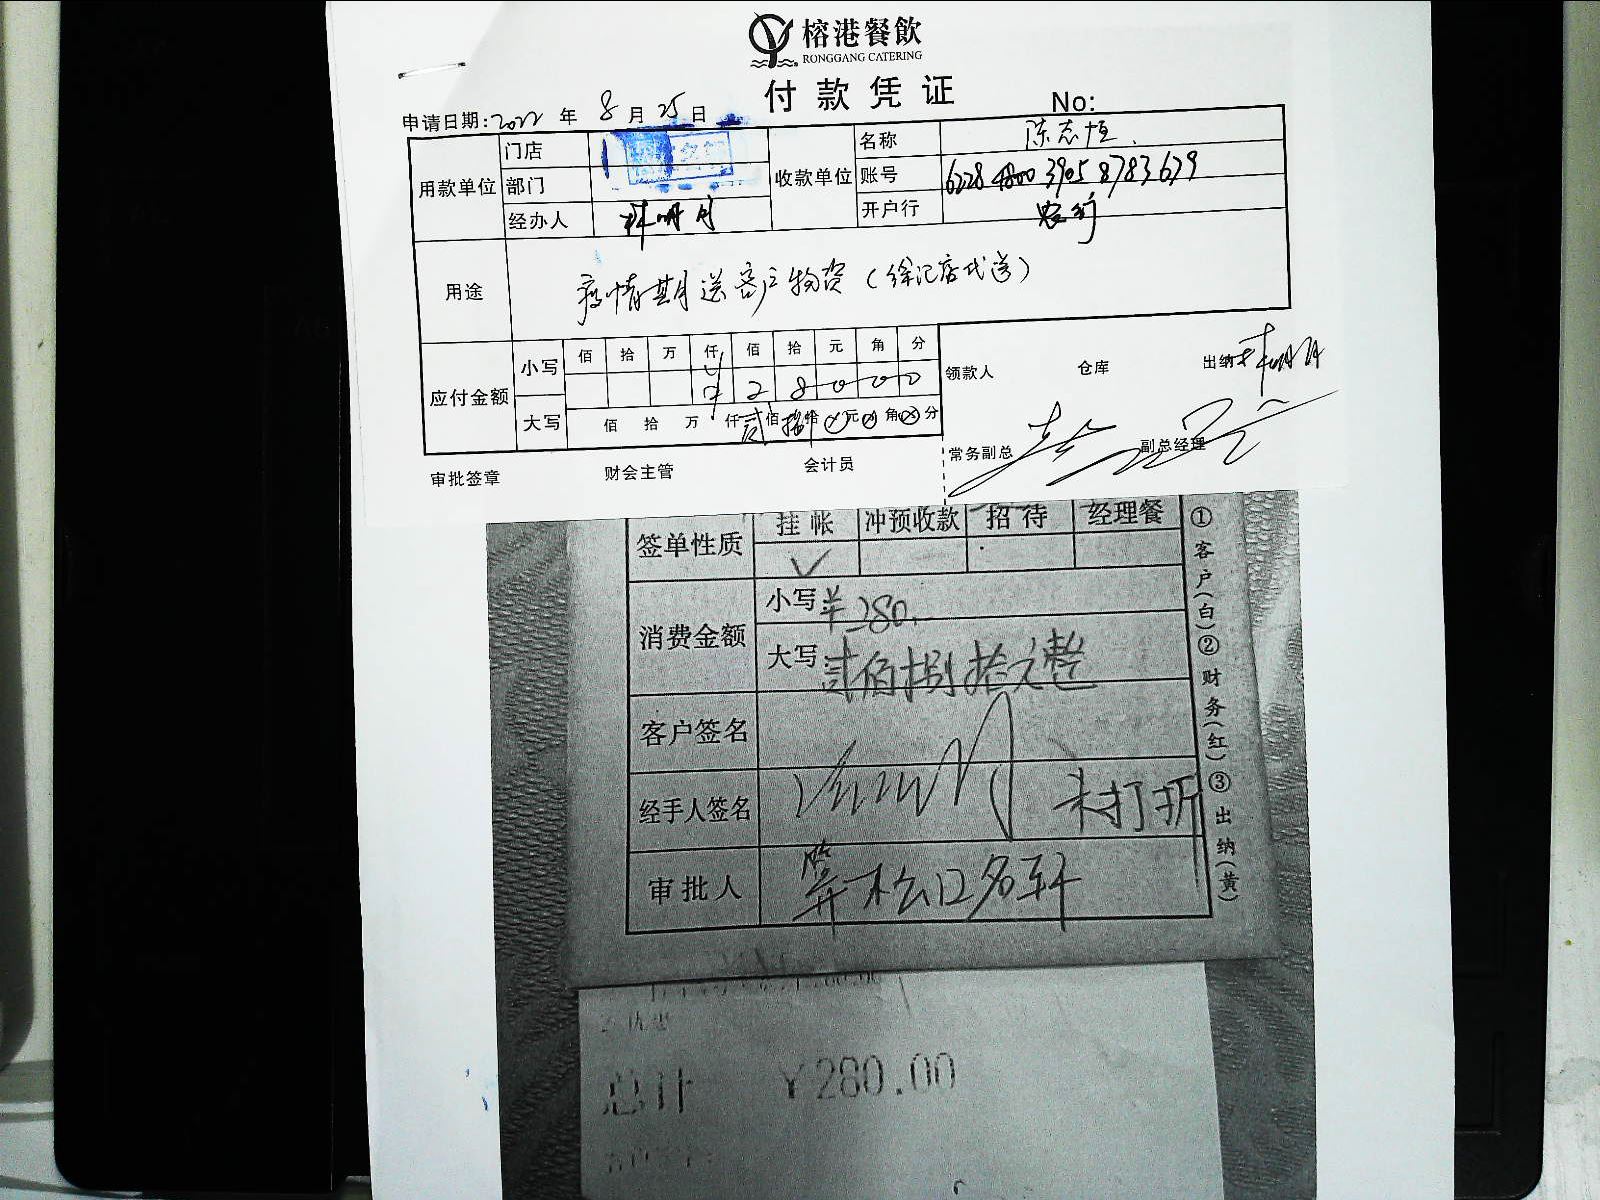 榕港餐飲
RONGGANG CATERING
付款凭证
No:
申请日期:2022年8月25日
用款单位 门店 收款单位 名称 陈志恒
部门 账号 6228 4800 3905 8783679
经办人 林明月 开户行 农行
用途 疫情期送客户物资(徐记店代送)
应付金额 小写 佰 拾 万 仟 佰 拾 元 角 分
¥ 2 8 0 0 0
大写 佰 拾 万 仟 贰佰 捌拾 元 角 分
领款人 仓库 出纳 林明月
常务副总 副总经理
审批签章 财会主管 会计员
签单性质 挂帐 冲预收款 招待 经理餐
✓
消费金额 小写 ¥280.
大写 贰佰捌拾元整
客户签名
经手人签名 未打折
审批人 松口名轩
①客户(白)②财务(红)③出纳(黄)
总计 ¥280.00